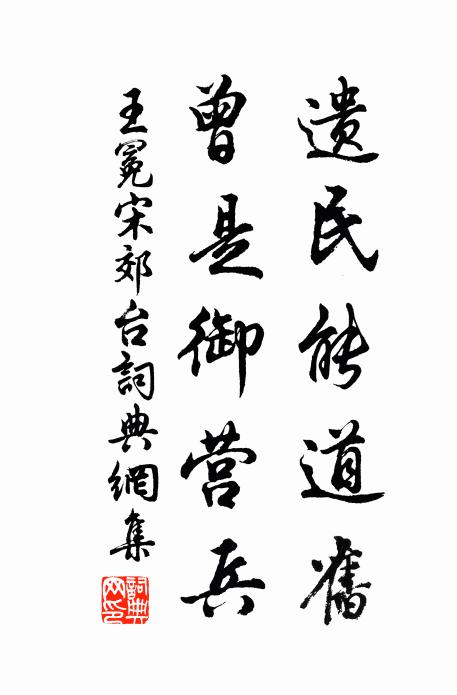 遺民能道舊
曾是御营兵
王冕宋郊台詞典網集
詞典网印